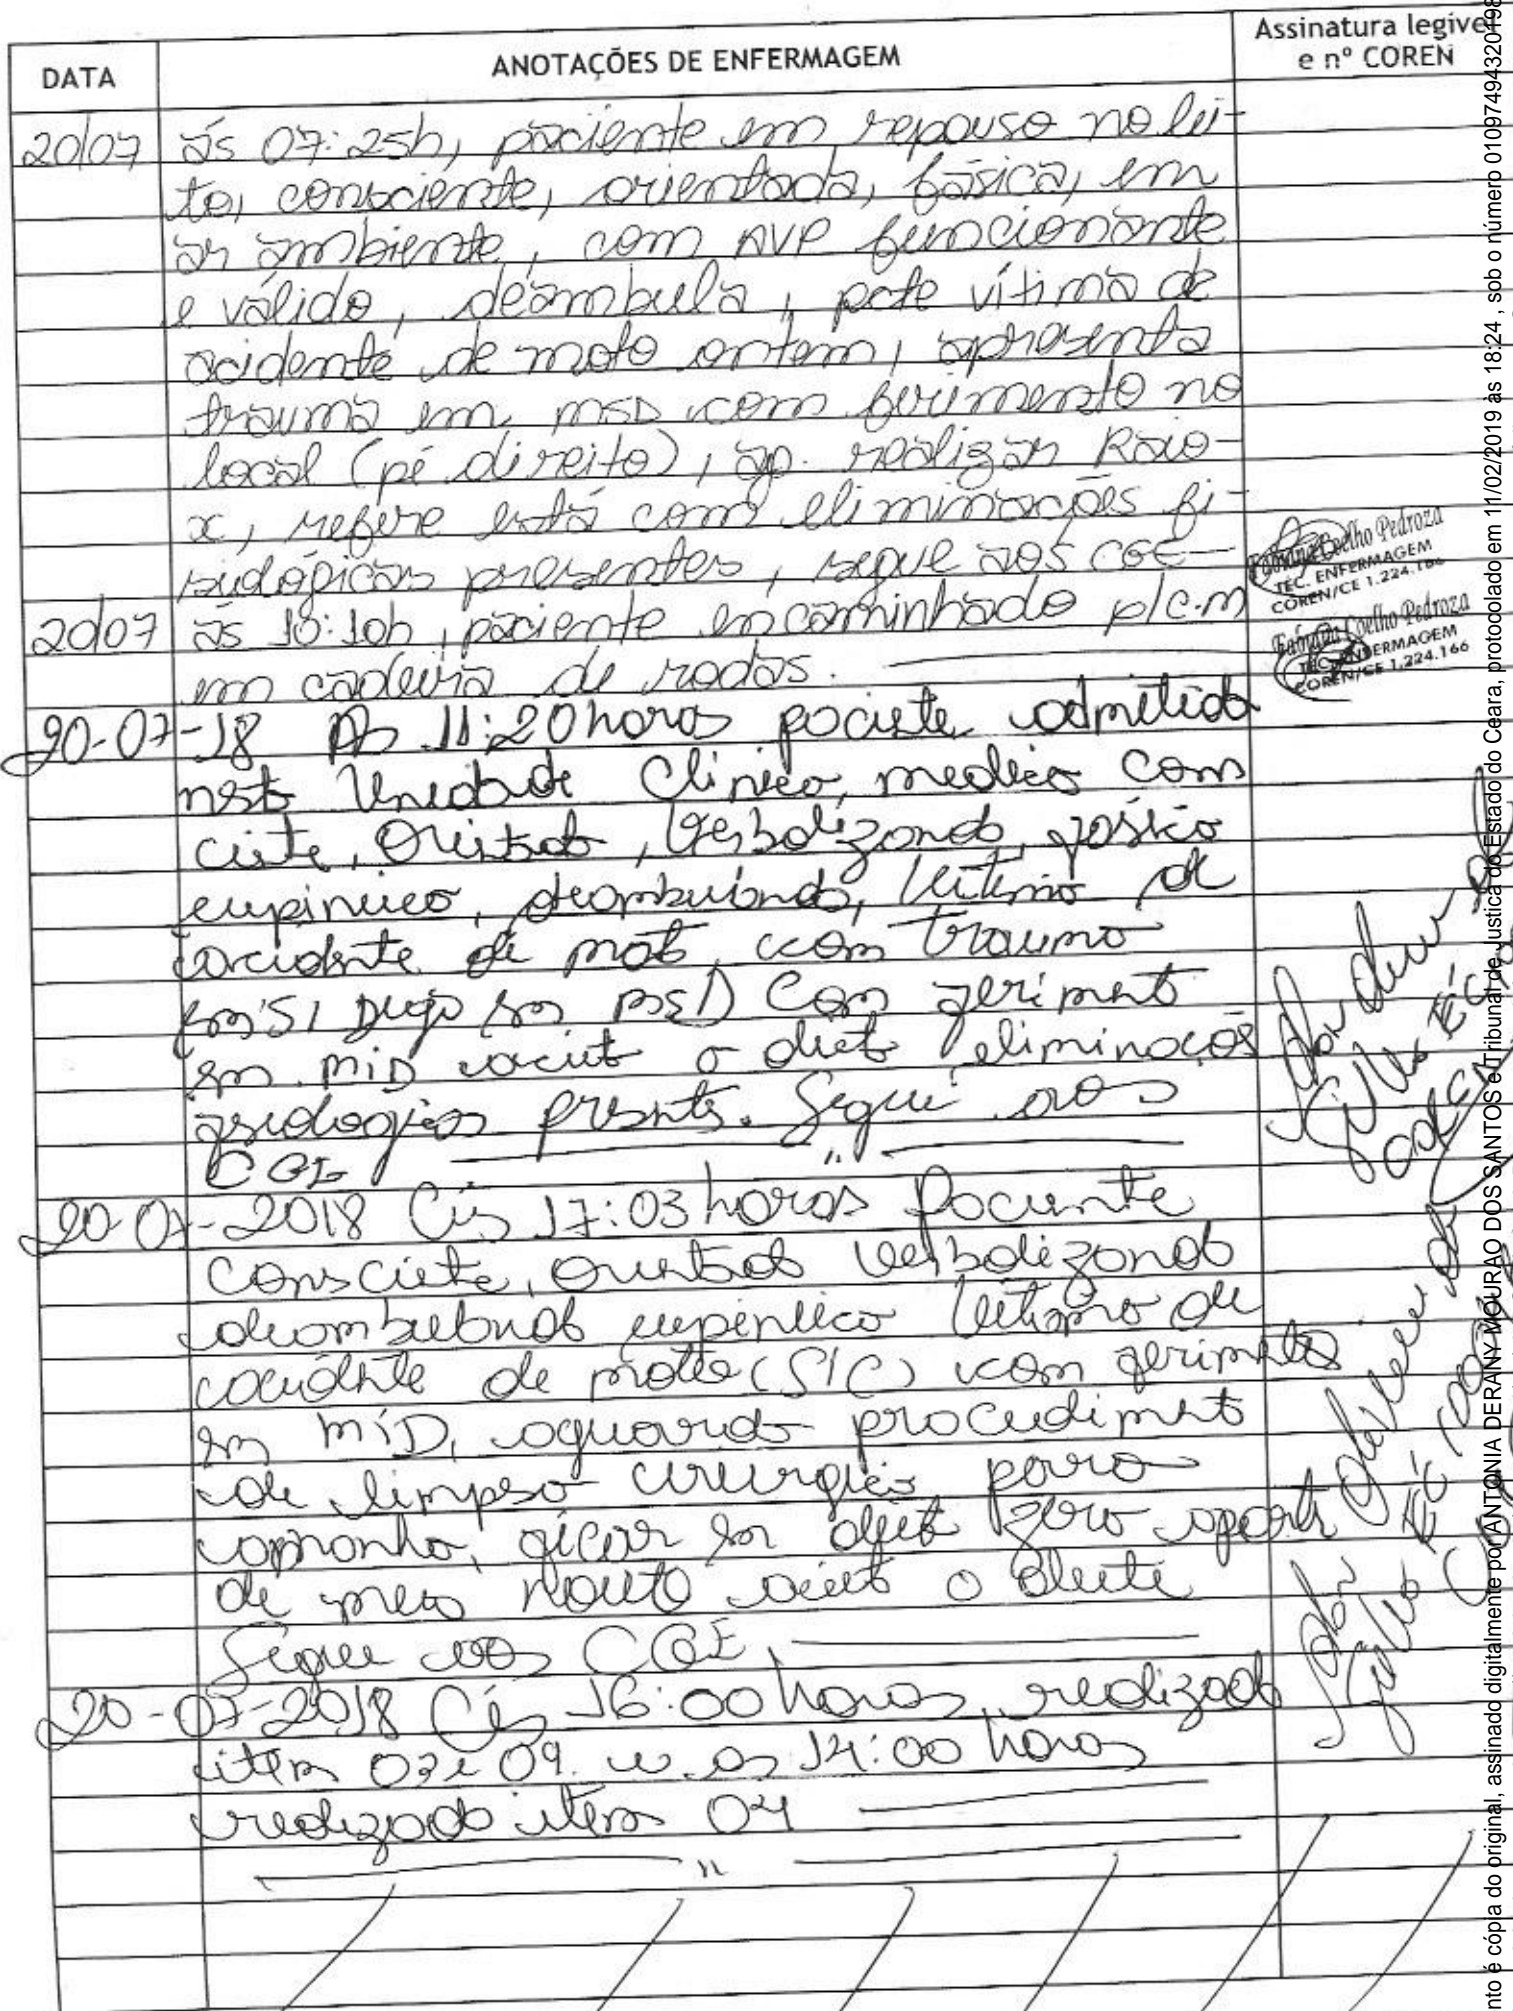 DATA
ANOTAÇÕES DE ENFERMAGEM
Assinatura legivel
e nº COREN
20/07 às 07:25h, paciente em repouso no lei-
to, consciente, orientada, fásica, em
ar ambiente, com AVP funcionante
e válido, deambula, pcte vítima de
acidente de moto ontem, apresenta
trauma em MSD com ferimento no
local (pé direito), ag. realizar Raio-
x, refere está com eliminações fi-
siológicas presentes, segue aos CGE
20/07 às 10:10h, paciente encaminhado p/c.m
em cadeira de rodas.
Fabiana Coelho Pedroza
TEC. ENFERMAGEM
COREN/CE 1.224.166
Fabiana Coelho Pedroza
TEC. ENFERMAGEM
COREN/CE 1.224.166
20-07-18 As 11:20 horas paciete admitido
nsta Unidade Clinico, medico com
ciete, Orietado, Verbalizando, fásico
eupineico, deambulando, Vitima de
acidente de moto, com trauma
em MSD Com ferimento
em MiD aceito a dieta eliminações
fisiologicas presnts. Segui aos
CGE
20-07-2018 Às 17:03 horas Paciente
Consciete, orientado verbalizando
deambulando eupineico Vitima de
acidente de moto (SIC) com ferimeto
em MiD, aguardo procedimeto
de limpesa cirurgica para
amanha, ficar em dieta zero aparti
de meia noite aceito a dieta
Segue aos CGE
20-07-2018 Às 16:00 horas, realizado
item 03 e 09. e as 14:00 horas
realizado item 04
nto é cópia do original, assinado digitalmente por ANTONIA DERANY MOURAO DOS SANTOS e Tribunal de Justica do Estado do Ceara, protocolado em 11/02/2019 às 18:24 , sob o número 0109749432019